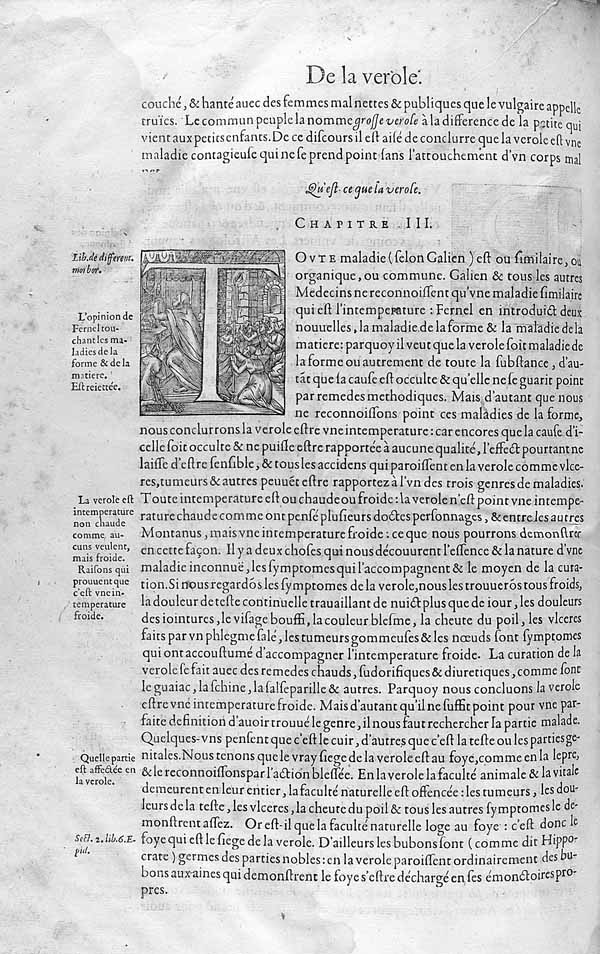 De la verole.
couché, & hanté auec des femmes mal nettes & publiques que le vulgaire appelle
truïes. Le commun peuple la nomme grosse verole à la difference de la petite qui
vient aux petits enfants. De ce discours il est aisé de conclurre que la verole est vne
maladie contagieuse qui ne se prend point sans l'attouchement d'vn corps mal
Qu'est ce que la verole.
CHAPITRE III.
Lib. de different.
morbor.
L'opinion de
Fernel tou-
chant les ma-
ladies de la
forme & de la
matiere.
Est reiettée.
TOVTE maladie (selon Galien) est ou similaire, ou
organique, ou commune. Galien & tous les autres
Medecins ne reconnoissent qu'vne maladie similaire
qui est l'intemperature : Fernel en introduict deux
nouuelles, la maladie de la forme & la maladie de la
matiere: parquoy il veut que la verole soit maladie de
la forme ou autrement de toute la substance, d'au-
tāt que sa cause est occulte & qu'elle ne se guarit point
par remedes methodiques. Mais d'autant que nous
ne reconnoissons point ces maladies de la forme,
nous conclurrons la verole estre vne intemperature: car encores que la cause d'i-
celle soit occulte & ne puisse estre rapportée à aucune qualité, l'effect pourtant ne
laisse d'estre sensible, & tous les accidens qui paroissent en la verole comme vlce-
res, tumeurs & autres peuuēt estre rapportez à l'vn des trois genres de maladies.
La verole est
intemperature
non chaude
comme au-
cuns veulent,
mais froide.
Raisons qui
prouuent que
c'est vne in-
temperature
froide.
Toute intemperature est ou chaude ou froide: la verole n'est point vne intempe-
rature chaude comme ont pensé plusieurs doctes personnages, & entre les autres
Montanus, mais vne intemperature froide: ce que nous pourrons demonstrer
en cette façon. Il y a deux choses qui nous découurent l'essence & la nature d'vne
maladie inconnuë, les symptomes qui l'accompagnent & le moyen de la cura-
tion. Si nous regardōs les symptomes de la verole, nous les trouuerōs tous froids,
la douleur de teste continuelle trauaillant de nuict plus que de iour, les douleurs
des iointures, le visage bouffi, la couleur blesme, la cheute du poil, les vlceres
faits par vn phlegme salé, les tumeurs gommeuses & les nœuds sont symptomes
qui ont accoustumé d'accompagner l'intemperature froide. La curation de la
verole se fait auec des remedes chauds, sudorifiques & diuretiques, comme sont
le guaiac, la schine, la salseparille & autres. Parquoy nous concluons la verole
estre vne intemperature froide. Mais d'autant qu'il ne suffit point pour vne par-
faite definition d'auoir trouué le genre, il nous faut rechercher la partie malade.
Quelques-vns pensent que c'est le cuir, d'autres que c'est la teste ou les parties ge-
Quelle partie
est affectée en
la verole.
nitales. Nous tenons que le vray siege de la verole est au foye, comme en la lepre,
& le reconnoissons par l'action blessée. En la verole la faculté animale & la vitale
demeurent en leur entier, la faculté naturelle est offencée: les tumeurs, les dou-
leurs de la teste, les vlceres, la cheute du poil & tous les autres symptomes le de-
monstrent assez. Or est-il que la faculté naturelle loge au foye : c'est donc le
Sect. 2. lib. 6. E-
pid.
foye qui est le siege de la verole. D'ailleurs les bubons sont (comme dit Hippo-
crate) germes des parties nobles: en la verole paroissent ordinairement des bu-
bons aux aines qui demonstrent le foye s'estre déchargé en ses émonctoires pro-
pres.